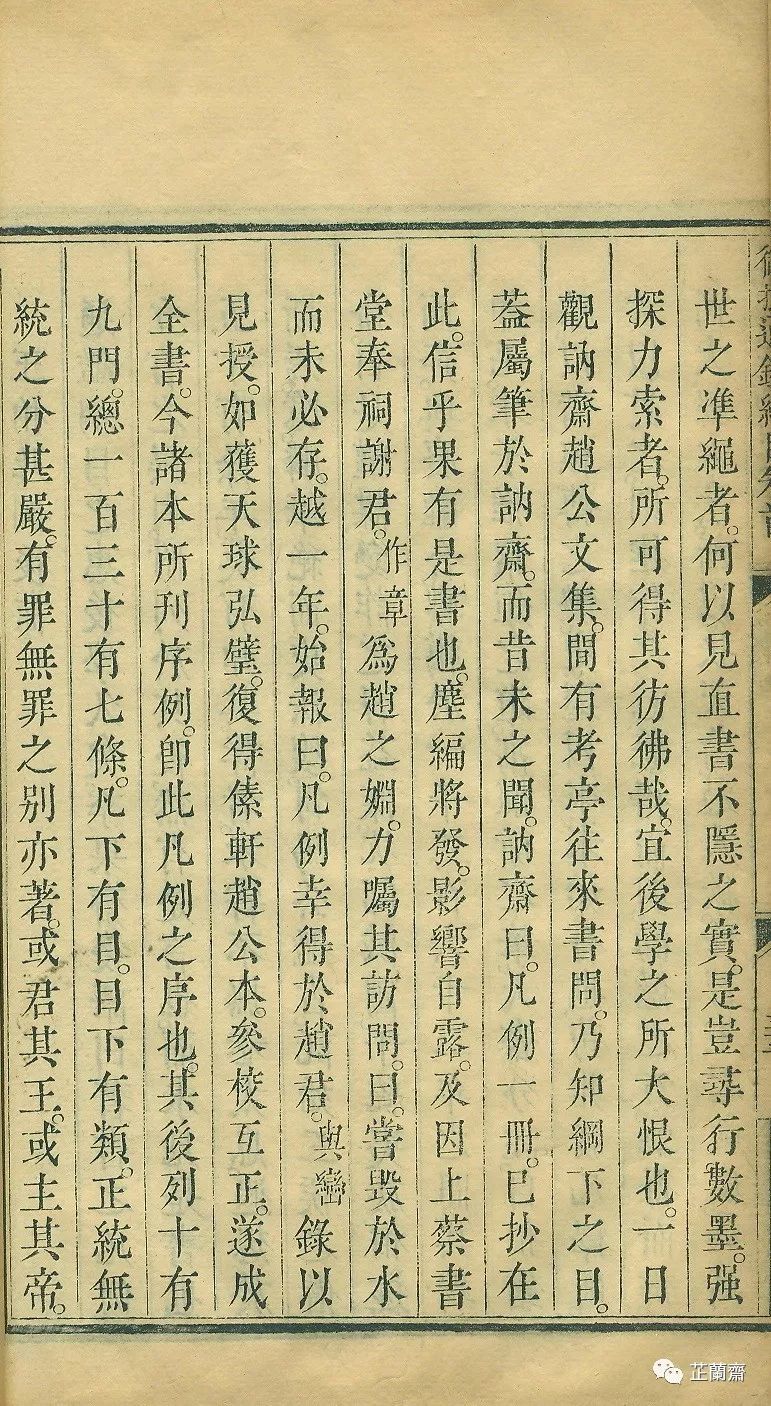 世之準繩者。何以見直書不隱之實。是豈尋行數墨。强
探力索者。所可得其彷彿哉。宜後學之所大恨也。一日
觀訥齋趙公文集。間有考亭往來書問。乃知綱下之目。
葢屬筆於訥齋。而昔未之聞。訥齋曰。凡例一冊。已抄在
此。信乎果有是書也。塵編將發。影響自露。及因上蔡書
堂奉祠謝君。作章爲趙之婣。力囑其訪問。曰。嘗毀於水
而未必存。越一年。始報曰。凡例幸得於趙君。與巒錄以
見授。如獲天球弘璧。復得傃軒趙公本。參校互正。遂成
全書。今諸本所刊序例。卽此凡例之序也。其後列十有
九門。總一百三十有七條。凡下有目。目下有類。正統無
統之分甚嚴。有罪無罪之別亦著。或君其王。或主其帝。
芷蘭齋